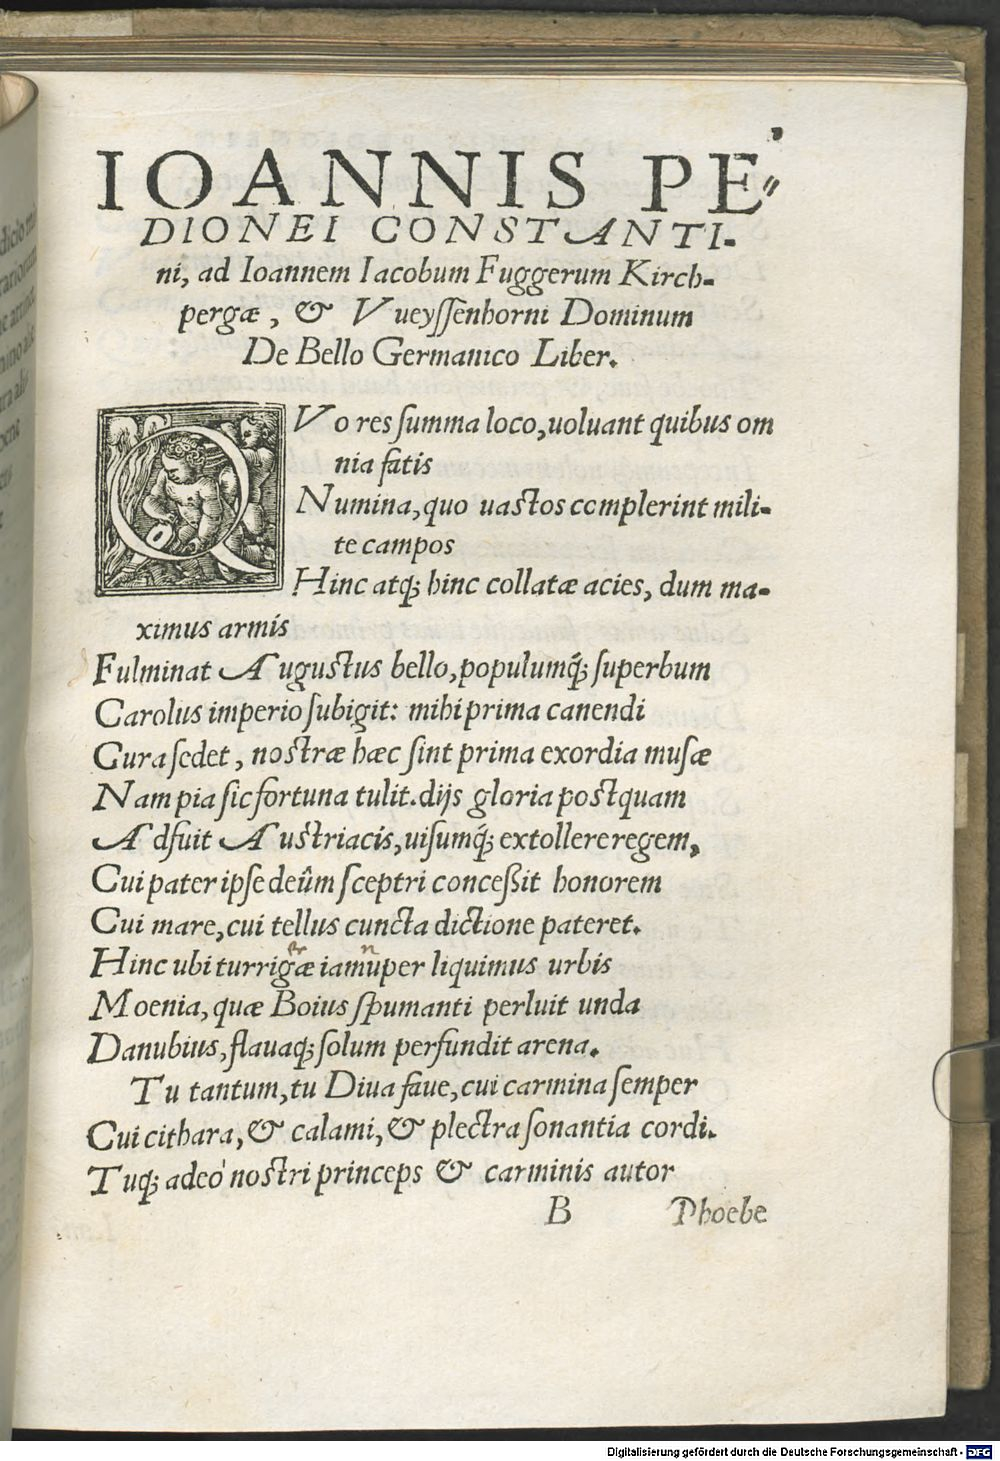 IOANNIS PE-
DIONEI CONSTANTI-
ni, ad Ioannem Iacobum Fuggerum Kirch-
pergæ, & Vueyssenhorni Dominum
De Bello Germanico Liber.
QVo res summa loco, uoluant quibus om
nia fatis
Numina, quo uastos complerint mili-
te campos
Hinc atq; hinc collatæ acies, dum ma-
ximus armis
Fulminat Augustus bello, populumq́; superbum
Carolus imperio subigit: mihi prima canendi
Cura sedet, nostræ hæc sint prima exordia musæ
Nam pia sic fortuna tulit. dijs gloria postquam
Adfuit Austriacis, uisumq́; extollere regem,
Cui pater ipse deûm sceptri conceßit honorem
Cui mare, cui tellus cuncta dictione pateret.
Hinc ubi turrigæ iamuper liquimus urbis
Moenia, quæ Boius spumanti perluit unda
Danubius, flauaq; solum perfundit arena.
Tu tantum, tu Diua faue, cui carmina semper
Cui cithara, & calami, & plectra sonantia cordi.
Tuq; adeò nostri princeps & carminis autor
B Phoebe
Digitalisierung gefördert durch die Deutsche Forschungsgemeinschaft - DFG